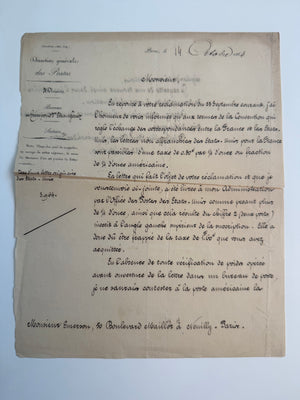 Direction générale
des Postes
Bureau
Paris, le 14 Octobre
Monsieur,
En réponse à votre réclamation du 23 Septembre courant, j'ai
l'honneur de vous informer qu'aux termes de la convention qui
règle l'échange des correspondances entre la France et les États-
Unis, les lettres non affranchies des États-Unis pour la France
sont passibles d'une taxe de par ½ once ou fraction
de ½ once américaine.
La lettre qui fait l'objet de votre réclamation et que je
vous renvoie ci-jointe, a été livrée à mon Administration
par l'Office des Postes des États-Unis comme pesant plus
de ½ once, ainsi que cela résulte du chiffre 2 (deux ports)
inscrit à l'angle gauche supérieur de la suscription. Elle a
donc dû être frappée de la taxe de que vous avez
acquittée.
En l'absence de toute vérification de poids opérée
avant ouverture de la lettre dans un bureau de poste,
je ne saurais contester à la poste américaine la
Monsieur Emerson, 10 Boulevard Maillot à Neuilly - Paris.